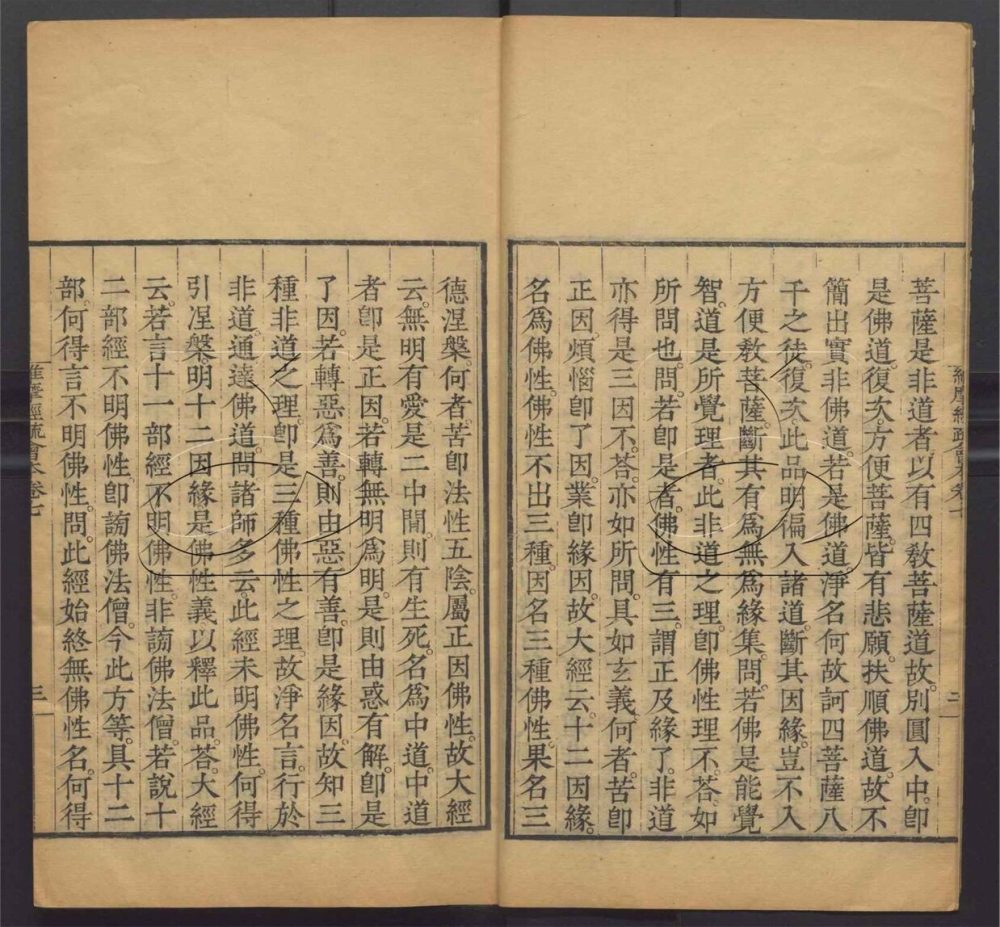 菩薩是非道者以有四敎菩薩道故。別圓入中。卽
是佛道。復次。方便菩薩。皆有悲願。扶順佛道。故不
簡出實非佛道。若是佛道。淨名何故訶四菩薩八
千之徒。復次。此品明偏入諸道。斷其因緣。豈不入
方便敎菩薩。斷其有爲無爲緣集。問。若佛是能覺
智。道是所覺理者。此非道之理。卽佛性理不。答。如
所問也。問。若卽是者。佛性有三。謂正及緣了。非道
亦得是三因不。答。亦如所問。具如玄義。何者。苦卽
正因。煩惱卽了因。業卽緣因。故大經云。十二因緣。
名爲佛性。佛性不出三種。因名三種佛性。果名三
德涅槃。何者。苦卽法性五陰。屬正因佛性。故大經
云。無明有愛。是二中間。則有生死。名爲中道。中道
者卽是正因。若轉無明爲明。是則由惑有解。卽是
了因。若轉惡爲善。則由惡有善。卽是緣因。故知三
種非道之理。卽是三種佛性之理。故淨名言。行於
非道。通達佛道。問。諸師多云。此經未明佛性。何得
引涅槃。明十二因緣是佛性義。以釋此品。答。大經
云。若言十一部經。不明佛性。非謗佛法僧。若說十
二部經不明佛性。卽謗佛法僧。今此方等。具十二
部。何得言不明佛性。問。此經始終無佛性名。何得
維摩經疏 卷七
三